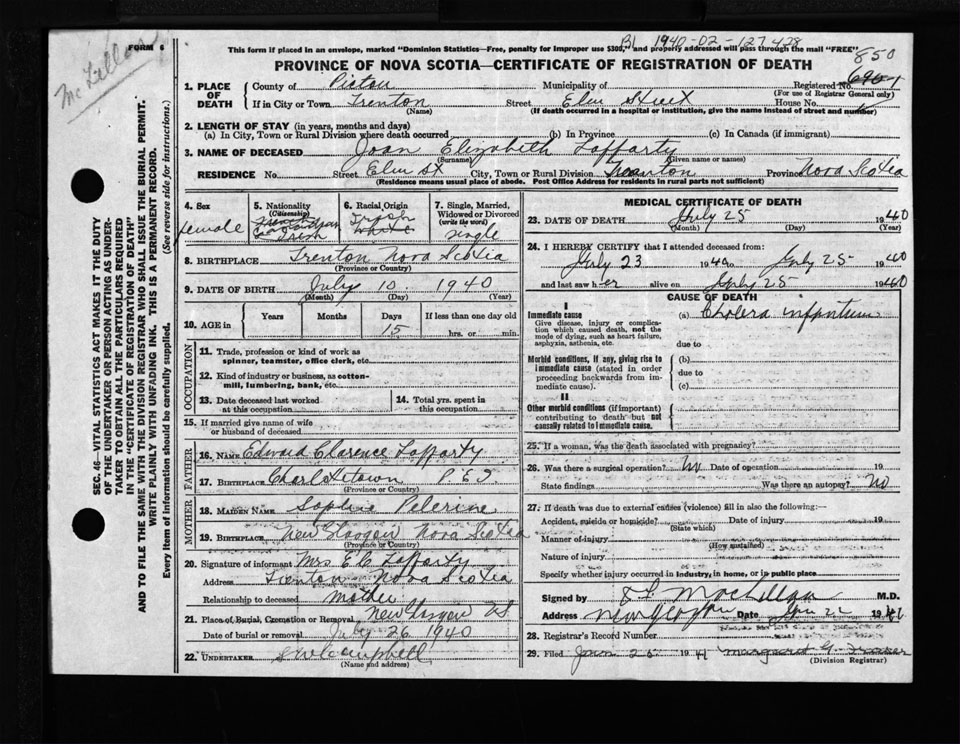 McLellan
FORM 6
B1 1940-02-127428
This form if placed in an envelope, marked "Dominion Statistics—Free, penalty for improper use $300," and properly addressed will pass through the mail "FREE"
850
PROVINCE OF NOVA SCOTIA—CERTIFICATE OF REGISTRATION OF DEATH
1. PLACE OF DEATH County of Pictou Municipality of Registered No.
(For use of Registrar General only)
If in City or Town Trenton Street Elm Street House No.
(Name) (If death occurred in a hospital or institution, give the name instead of street and number)
2. LENGTH OF STAY (in years, months and days)
(a) In City, Town or Rural Division where death occurred (b) In Province (c) In Canada (if immigrant)
3. NAME OF DECEASED Joan Elizabeth Lafferty
(Surname) (Given name or names)
RESIDENCE No. Street Elm St City, Town or Rural Division Trenton Province Nova Scotia
(Residence means usual place of abode. Post Office Address for residents in rural parts not sufficient)
4. Sex
female
5. Nationality
(Citizenship)
Canadian
Irish
6. Racial Origin
Irish
White
7. Single, Married, Widowed or Divorced
(write the word)
Single
8. BIRTHPLACE Trenton Nova Scotia
(Province or Country)
9. DATE OF BIRTH July 10 1940
(Month) (Day) (Year)
10. AGE in Years Months Days If less than one day old
15 hrs. or min.
OCCUPATION
11. Trade, profession or kind of work as spinner, teamster, office clerk, etc.
12. Kind of industry or business, as cotton-mill, lumbering, bank, etc.
23. Date deceased last worked at this occupation
14. Total yrs. spent in this occupation
15. If married give name of wife or husband of deceased
FATHER
16. NAME Edward Clarence Lafferty
17. BIRTHPLACE Charlottetown P.E.I
(Province or Country)
MOTHER
18. MAIDEN NAME Sophie Pelerine
19. BIRTHPLACE New Glasgow Nova Scotia
(Province or Country)
20. Signature of informant Mrs E.C. Lafferty
Address Trenton Nova Scotia
Relationship to deceased mother
21. Place of Burial, Cremation or Removal New Glasgow N.S.
Date of burial or removal July 26 1940
22. UNDERTAKER Campbell
(Name and address)
MEDICAL CERTIFICATE OF DEATH
23. DATE OF DEATH July 25 1940
(Month) (Day) (Year)
24. I HEREBY CERTIFY that I attended deceased from:
July 23 1940 to July 25 1940
and last saw her alive on July 25 1940
CAUSE OF DEATH
I
Immediate cause (a) Cholera infantum
Give disease, injury or complication which caused death, not the mode of dying, such as heart failure, asphyxia, asthenia, etc.
due to
Morbid conditions, if any, giving rise to immediate cause (stated in order proceeding backwards from immediate cause).
(b)
due to
(c)
II
Other morbid conditions (if important) contributing to death but not causally related to immediate cause.
25. If a woman, was the death associated with pregnancy?
26. Was there a surgical operation? No Date of operation 19
State findings Was there an autopsy? No
27. If death was due to external causes (violence) fill in also the following:—
Accident, suicide or homicide? Date of injury 19
(State which)
Manner of injury
(How sustained)
Nature of injury
Specify whether injury occurred in industry, in home, or in public place
Signed by MacLellan M.D.
Address New Glasgow Date Jan 22 1941
28. Registrar's Record Number
29. Filed Jan 25 1941 Margaret G. Fraser
(Division Registrar)
SEC. 46—VITAL STATISTICS ACT MAKES IT THE DUTY
OF THE UNDERTAKER OR PERSON ACTING AS UNDER-
TAKER TO OBTAIN ALL THE PARTICULARS REQUIRED
IN THE "CERTIFICATE OF REGISTRATION OF DEATH"
AND TO FILE THE SAME WITH THE DIVISION REGISTRAR WHO SHALL ISSUE THE BURIAL PERMIT.
WRITE PLAINLY WITH UNFADING INK. THIS IS A PERMANENT RECORD.
Every item of information should be carefully supplied. (See reverse side for instructions.)